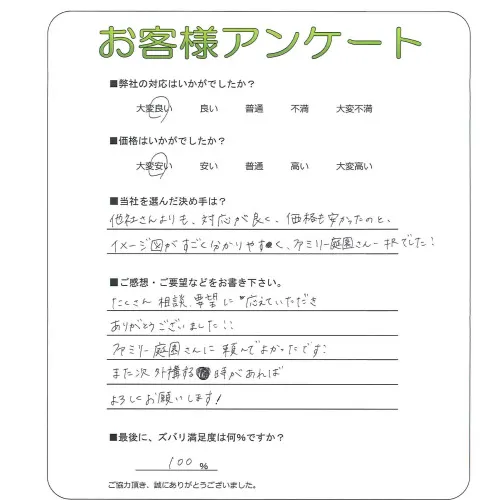 お客様アンケート
■弊社の対応はいかがでしたか？
大変良い 良い 普通 不満 大変不満
■価格はいかがでしたか？
大変安い 安い 普通 高い 大変高い
■当社を選んだ決め手は？
他社さんよりも、対応が良く、価格も安かったのと、
イメージ図がすごく分かりやすく、ファミリー庭園さん一択でした！
■ご感想・ご要望などをお書き下さい。
たくさん相談、要望に応えていただき
ありがとうございました！！
ファミリー庭園さんに頼んでよかったです！
また次外構する時があれば
よろしくお願いします！
■最後に、ズバリ満足度は何％ですか？
100 ％
ご協力頂き、誠にありがとうございました。